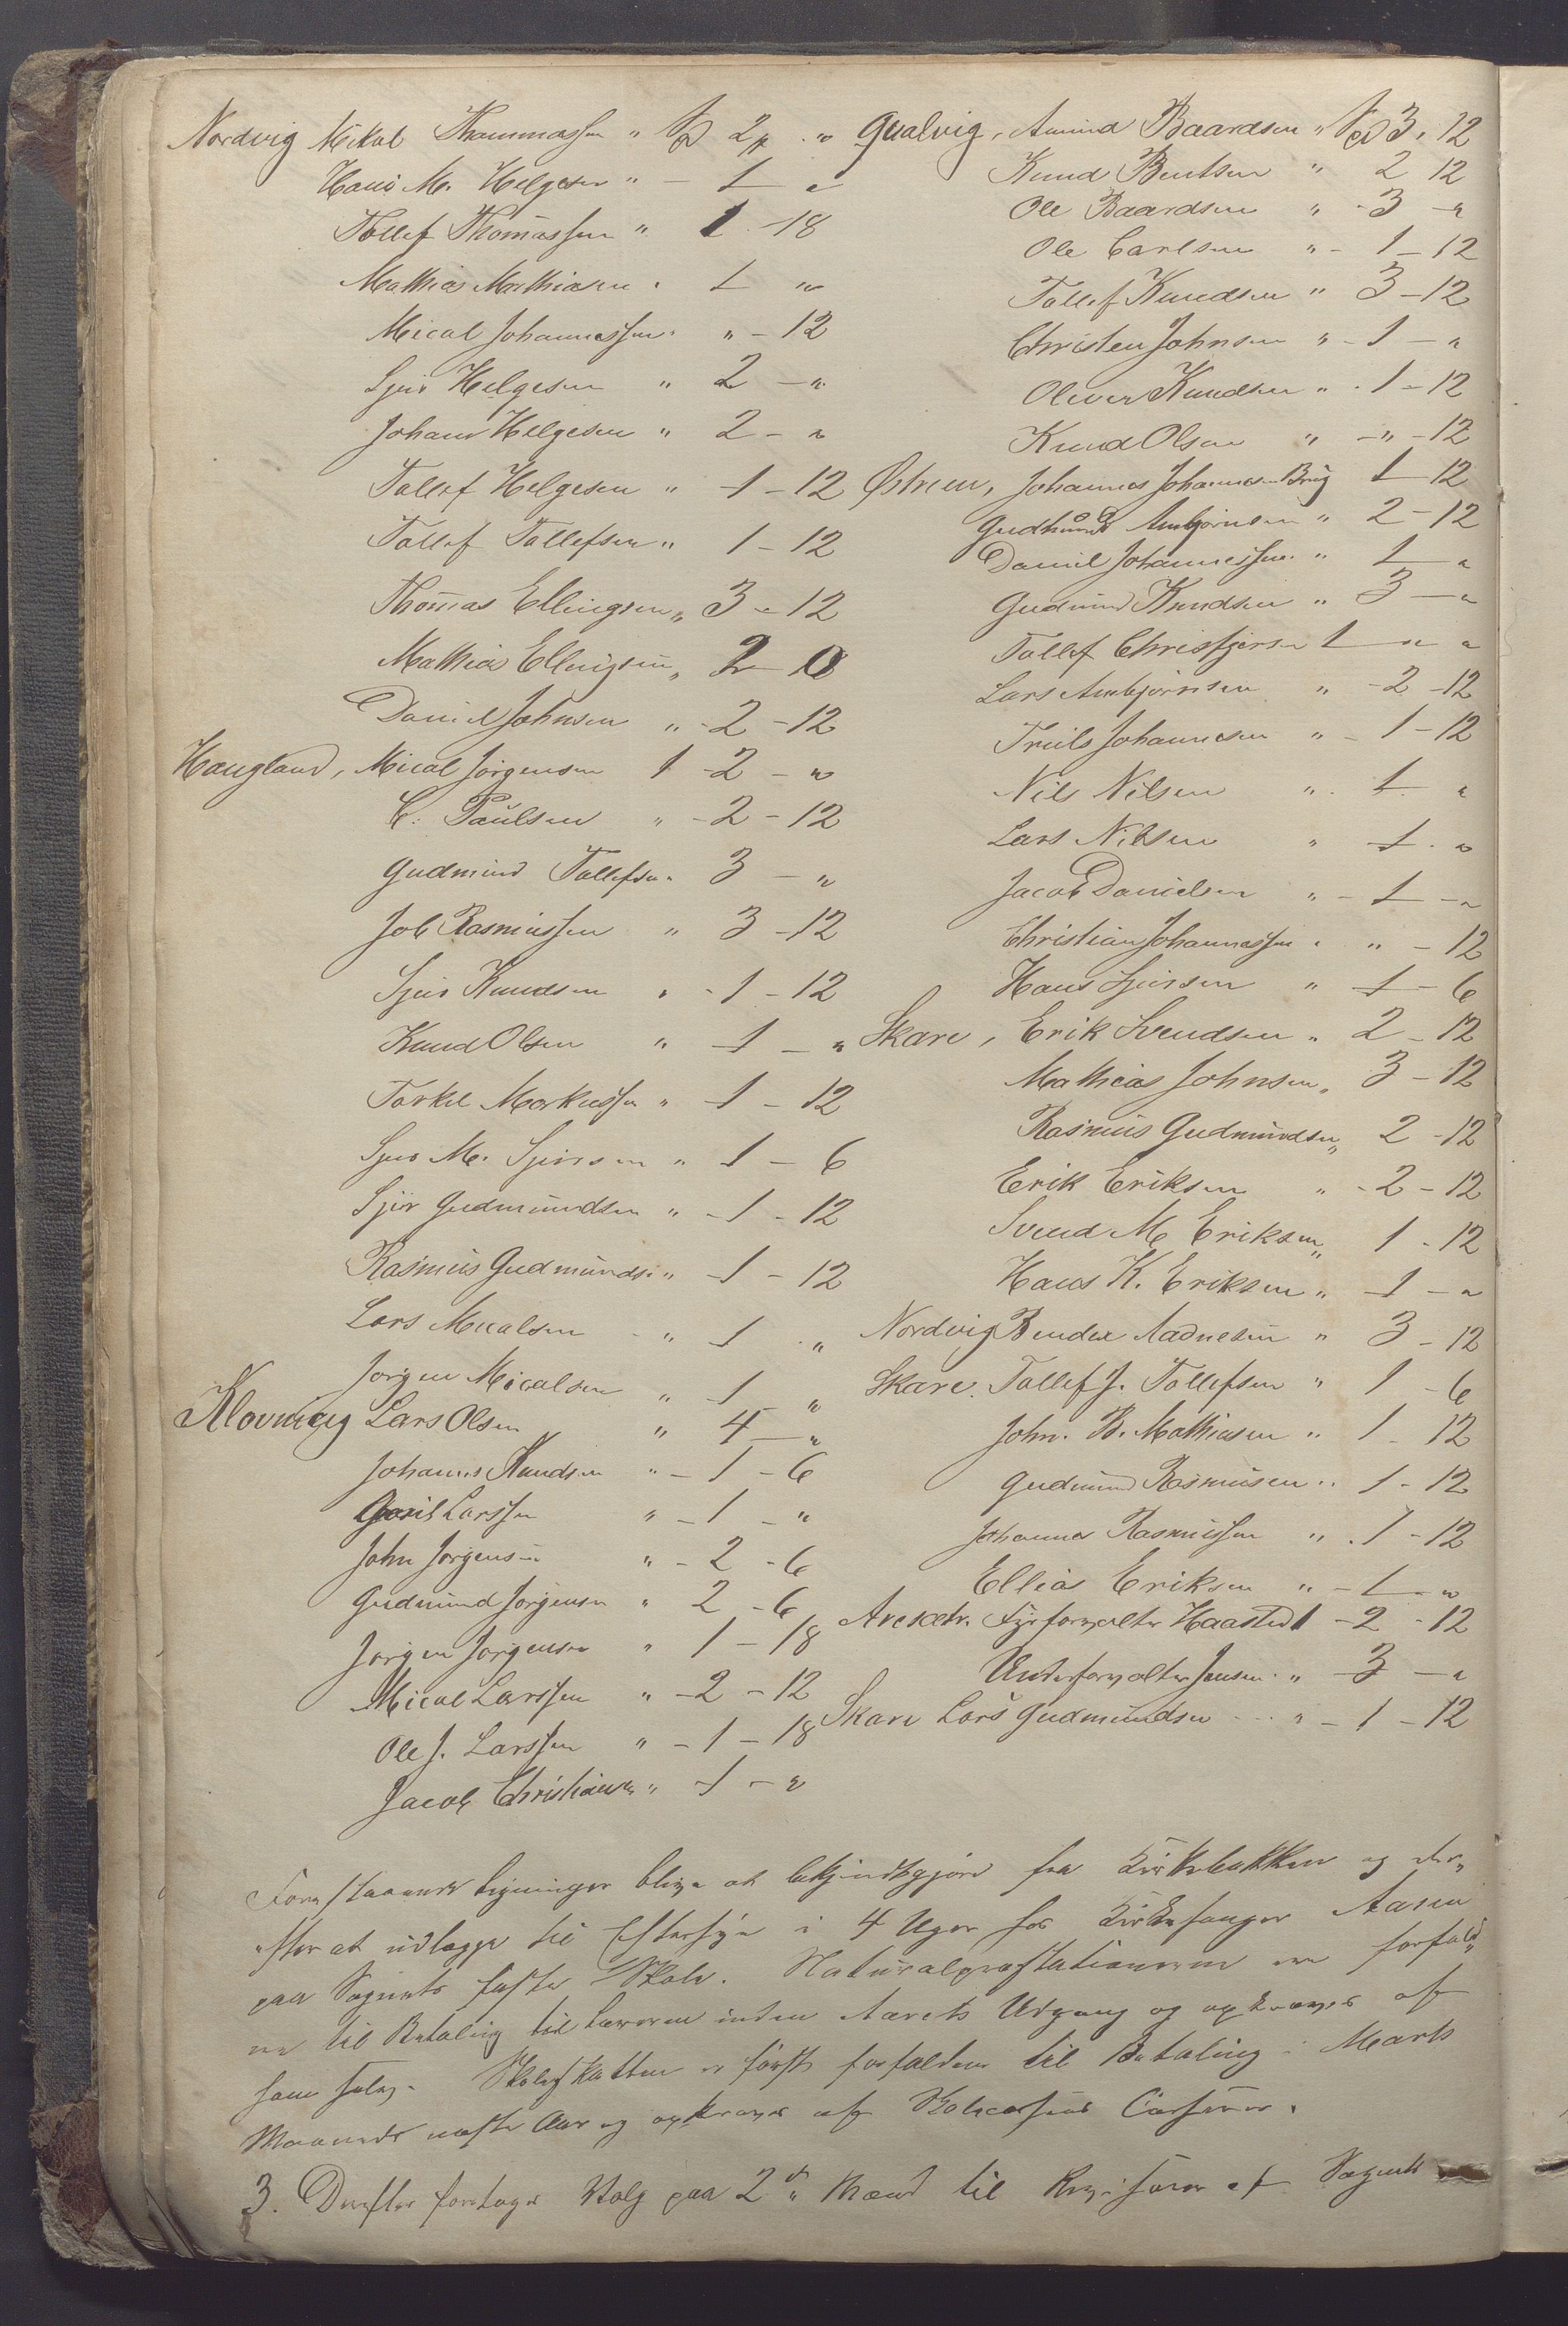 Nordvig Mikal Thommassen " Spd 2 "
Hans M. Helgesen " - 1 "
Tollef Thomassen " 1 - 18
Mathias Mathiasen " 1 "
Mical Johannessen " " - 12
Sjur Helgesen " 2 - "
Johans Helgesen " 2 - "
Tollef Helgesen " - 1 - 12
Tollef Tollefsen " 1 - 12
Thomas Ellingsen " 3 - 12
Mathias Ellingsen " 2
Daniel Johnsen " - 2 - 12
Haugland, Mical Jørgensen 1 - 2 - "
C. Paulsen " - 2 - 12
Gudmund Tollefsen " 3 - "
Job Rasmussen " 3 - 12
Sjur Knudsen " - 1 - 12
Knud Olsen " - 1 - "
Torkel Markussen " - 1 - 12
Sjur M. Sjursen " - 1 - 6
Sjur Gudmundsen " - 1 - 12
Rasmus Gudmunds. " - 1 - 12
Lars Micalsen " - 1 "
Jørgen Micalsen " - 1 "
Klovning Lars Olsen " 4 - "
Johannes Knudsen " - 1 - 6
Larssen " - 1 - "
John Jørgensen " - 2 - 6
Gudmund Jørgensen " 2 - 6
Jørgen Jørgensen " 1 - 18
Mical Larssen " - 2 - 12
Ole J. Larssen " - 1 - 18
Jacob Christiansen " - 1 - "
Gualvig, Amund Baardsen " Spd 3, 12
Knud Bentsen " 2 12
Ole Baardsen " - 3 - "
Ole Carlsen " - 1 - 12
Tollef Knudsen " 3 - 12
Christen Johnsen " - 1 - "
Oliver Knudsen " - 1 - 12
Knud Olsen " - " - 12
Østreim, Johannes Johannesen Brug 1 - 12
Gudmund Ambjørnsen " 2 - 12
Daniel Johannessen " 1 - "
Gudmund Knudsen " 3 - "
Tollef Christjersen 1 - " "
Lars Ambjørnsen " - 2 - 12
Truls Johannesen " - 1 - 12
Nils Nilsen " - 1 "
Lars Nilsen " - 1 - "
Jacob Danielsen " - 1 - "
Christian Johannessen " " - 12
Hans Sjursen " - 1 - 6
Skare, Erik Svendsen " 2 - 12
Mathias Johnsen " 3 - 12
Rasmus Gudmundsen " 2 - 12
Erik Eriksen " - 2 - 12
Svend M Eriksen " 1 - 12
Hans K. Eriksen " - 1 - "
Nordvig Bendix Aadnesen " 3 - 12
Skare. Tollef J. Tollefsen " 1 - 6
John. B. Mathiasen " 1 - 12
Gudmund Rasmusen " 1 - 12
Johannes Rasmussen " - 1 - 12
Ellias Eriksen " - 1 - "
Aresætr. Fyrforvalter Haasted 1 - 2 - 12
Underforvalter Jensen " - 3 - "
Skare Lars Gudmundsen " - 1 - 12
Forestaaende Ligninger blive at bekjendtgjøre fra Kirkebakken og der-
efter at udlægge til Eftersyn i 4 Uger hos Kirkesanger Aasen
paa Sognets faste Skole. Naturalpræstationerne ere forfald-
ne til Betaling til Læreren inden Aarets Udgang og opkræves af
ham selv. Skoleskatten er først forfalden til Betaling i Marts
Maaned næste Aar og opkræves af Skolecassens Casserer.
3. Derefter foretages Valg paa 2de Mænd til Revisorer af Sognets